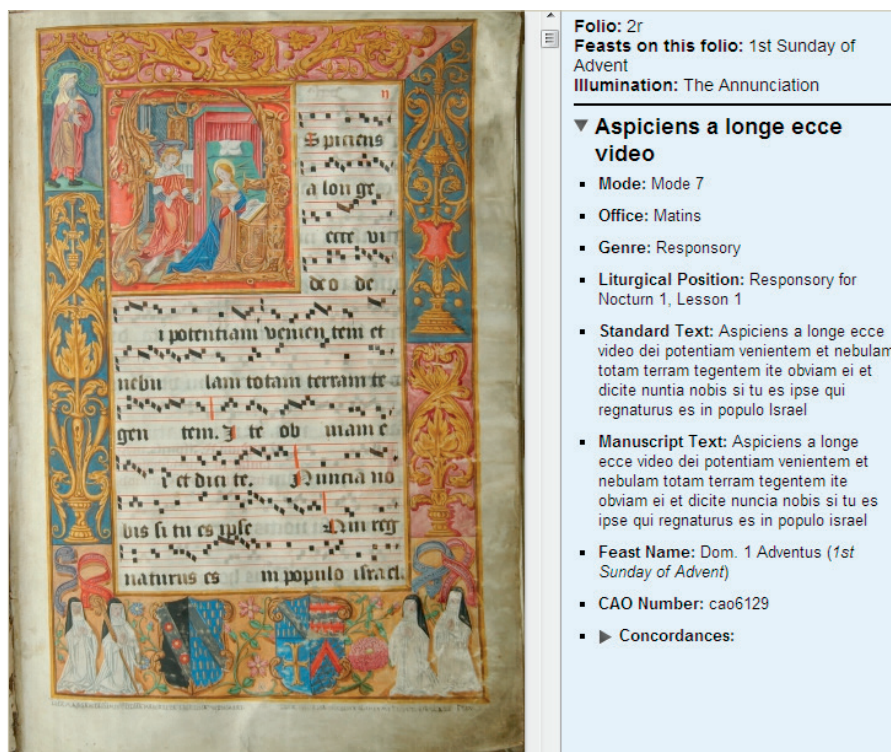 ii
Spiciens
a lon ge,
ecce vi
deo de
i potentiam venien tem et
nebu lam totam terram te
gen tem. I te ob uiam e
i et dici te. Nuncia no
bis si tu es ipse Qui reg
naturus es in populo israel.
Folio: 2r
Feasts on this folio: 1st Sunday of
Advent
Illumination: The Annunciation
▼ Aspiciens a longe ecce
video
▪ Mode: Mode 7
▪ Office: Matins
▪ Genre: Responsory
▪ Liturgical Position: Responsory for
Nocturn 1, Lesson 1
▪ Standard Text: Aspiciens a longe ecce
video dei potentiam venientem et nebulam
totam terram tegentem ite obviam ei et
dicite nuntia nobis si tu es ipse qui
regnaturus es in populo Israel
▪ Manuscript Text: Aspiciens a longe
ecce video dei potentiam venientem et
nebulam totam terram tegentem ite
obviam ei et dicite nuncia nobis si tu es
ipse qui regnaturus es in populo israel
▪ Feast Name: Dom. 1 Adventus (1st
Sunday of Advent)
▪ CAO Number: cao6129
▪ ▶ Concordances: